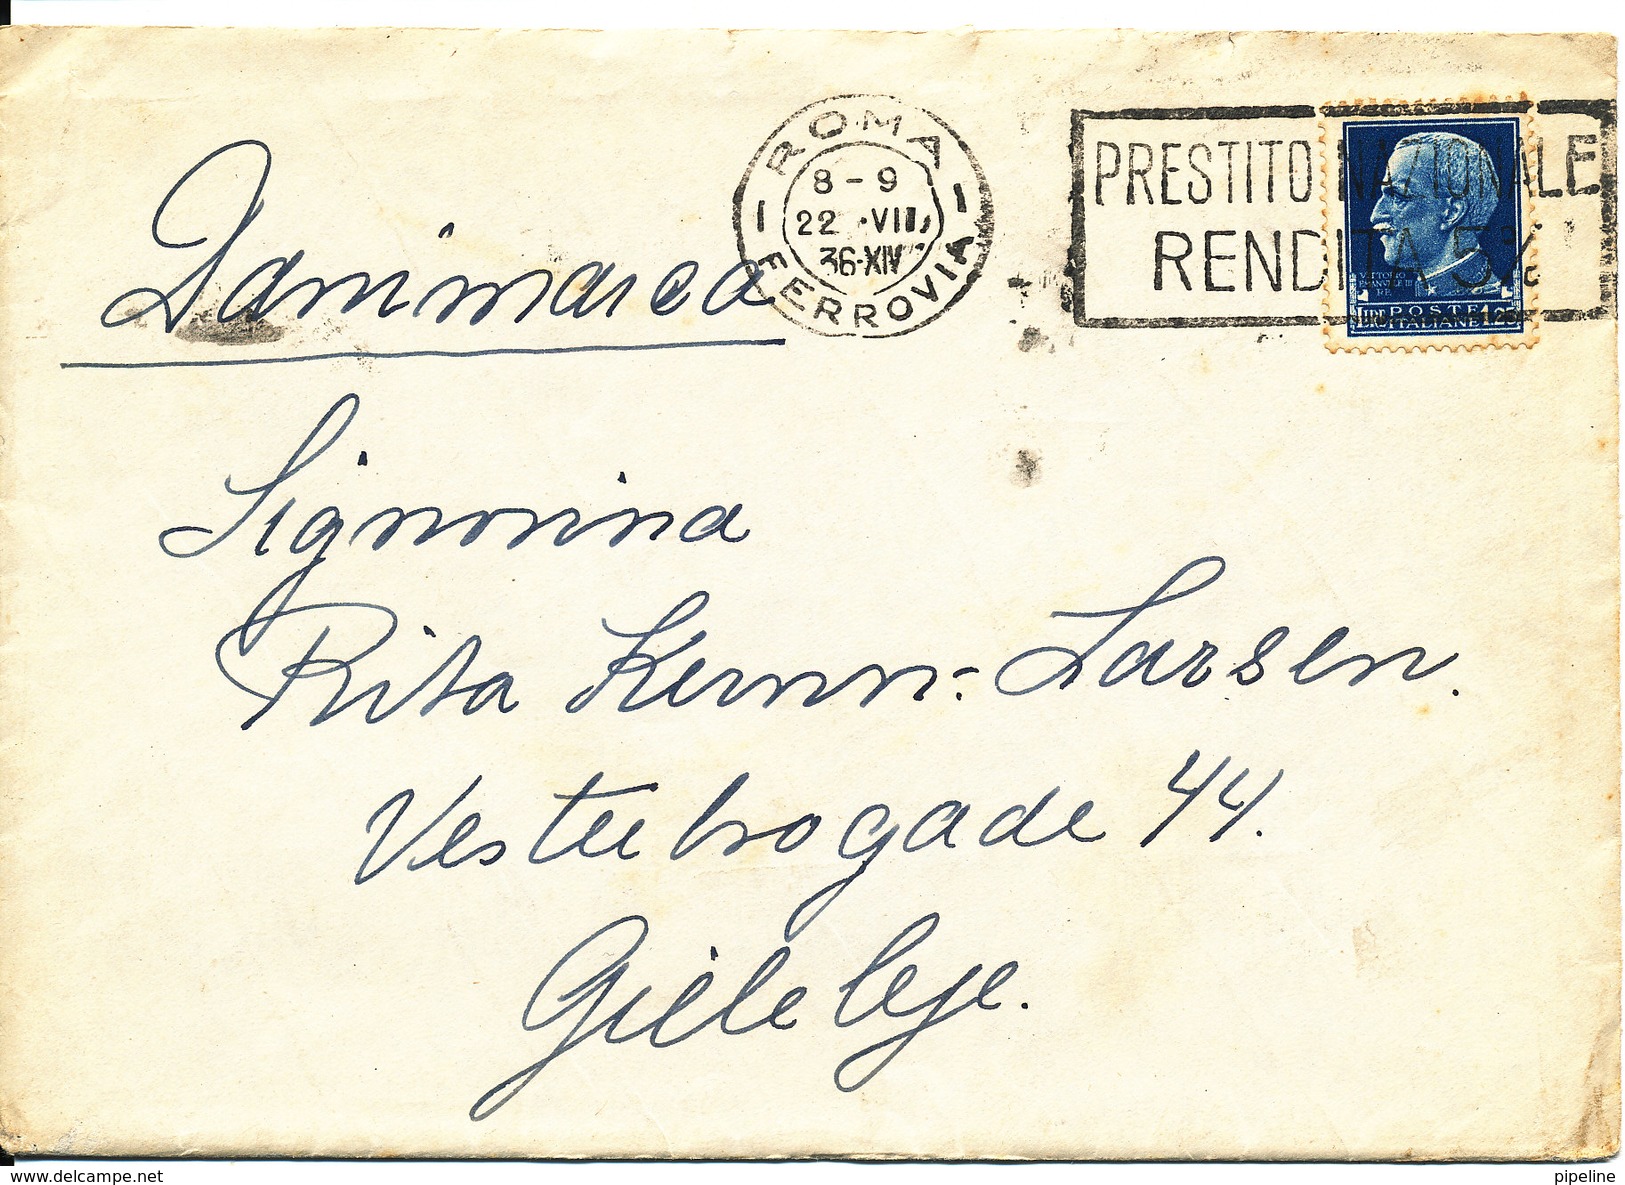 ROMA
8 - 9
22 · VII
36·XIV
FERROVIA
PRESTITO NAZIONALE
RENDITA 5%
VITTORIO
EMANUELE III
RE
LIRE POSTE 1,25
ITALIANE
Danimarca
Signorina
Rita Kernn-Larsen.
Vesterbrogade 44.
Gilleleje.
www.delcampe.net
pipeline